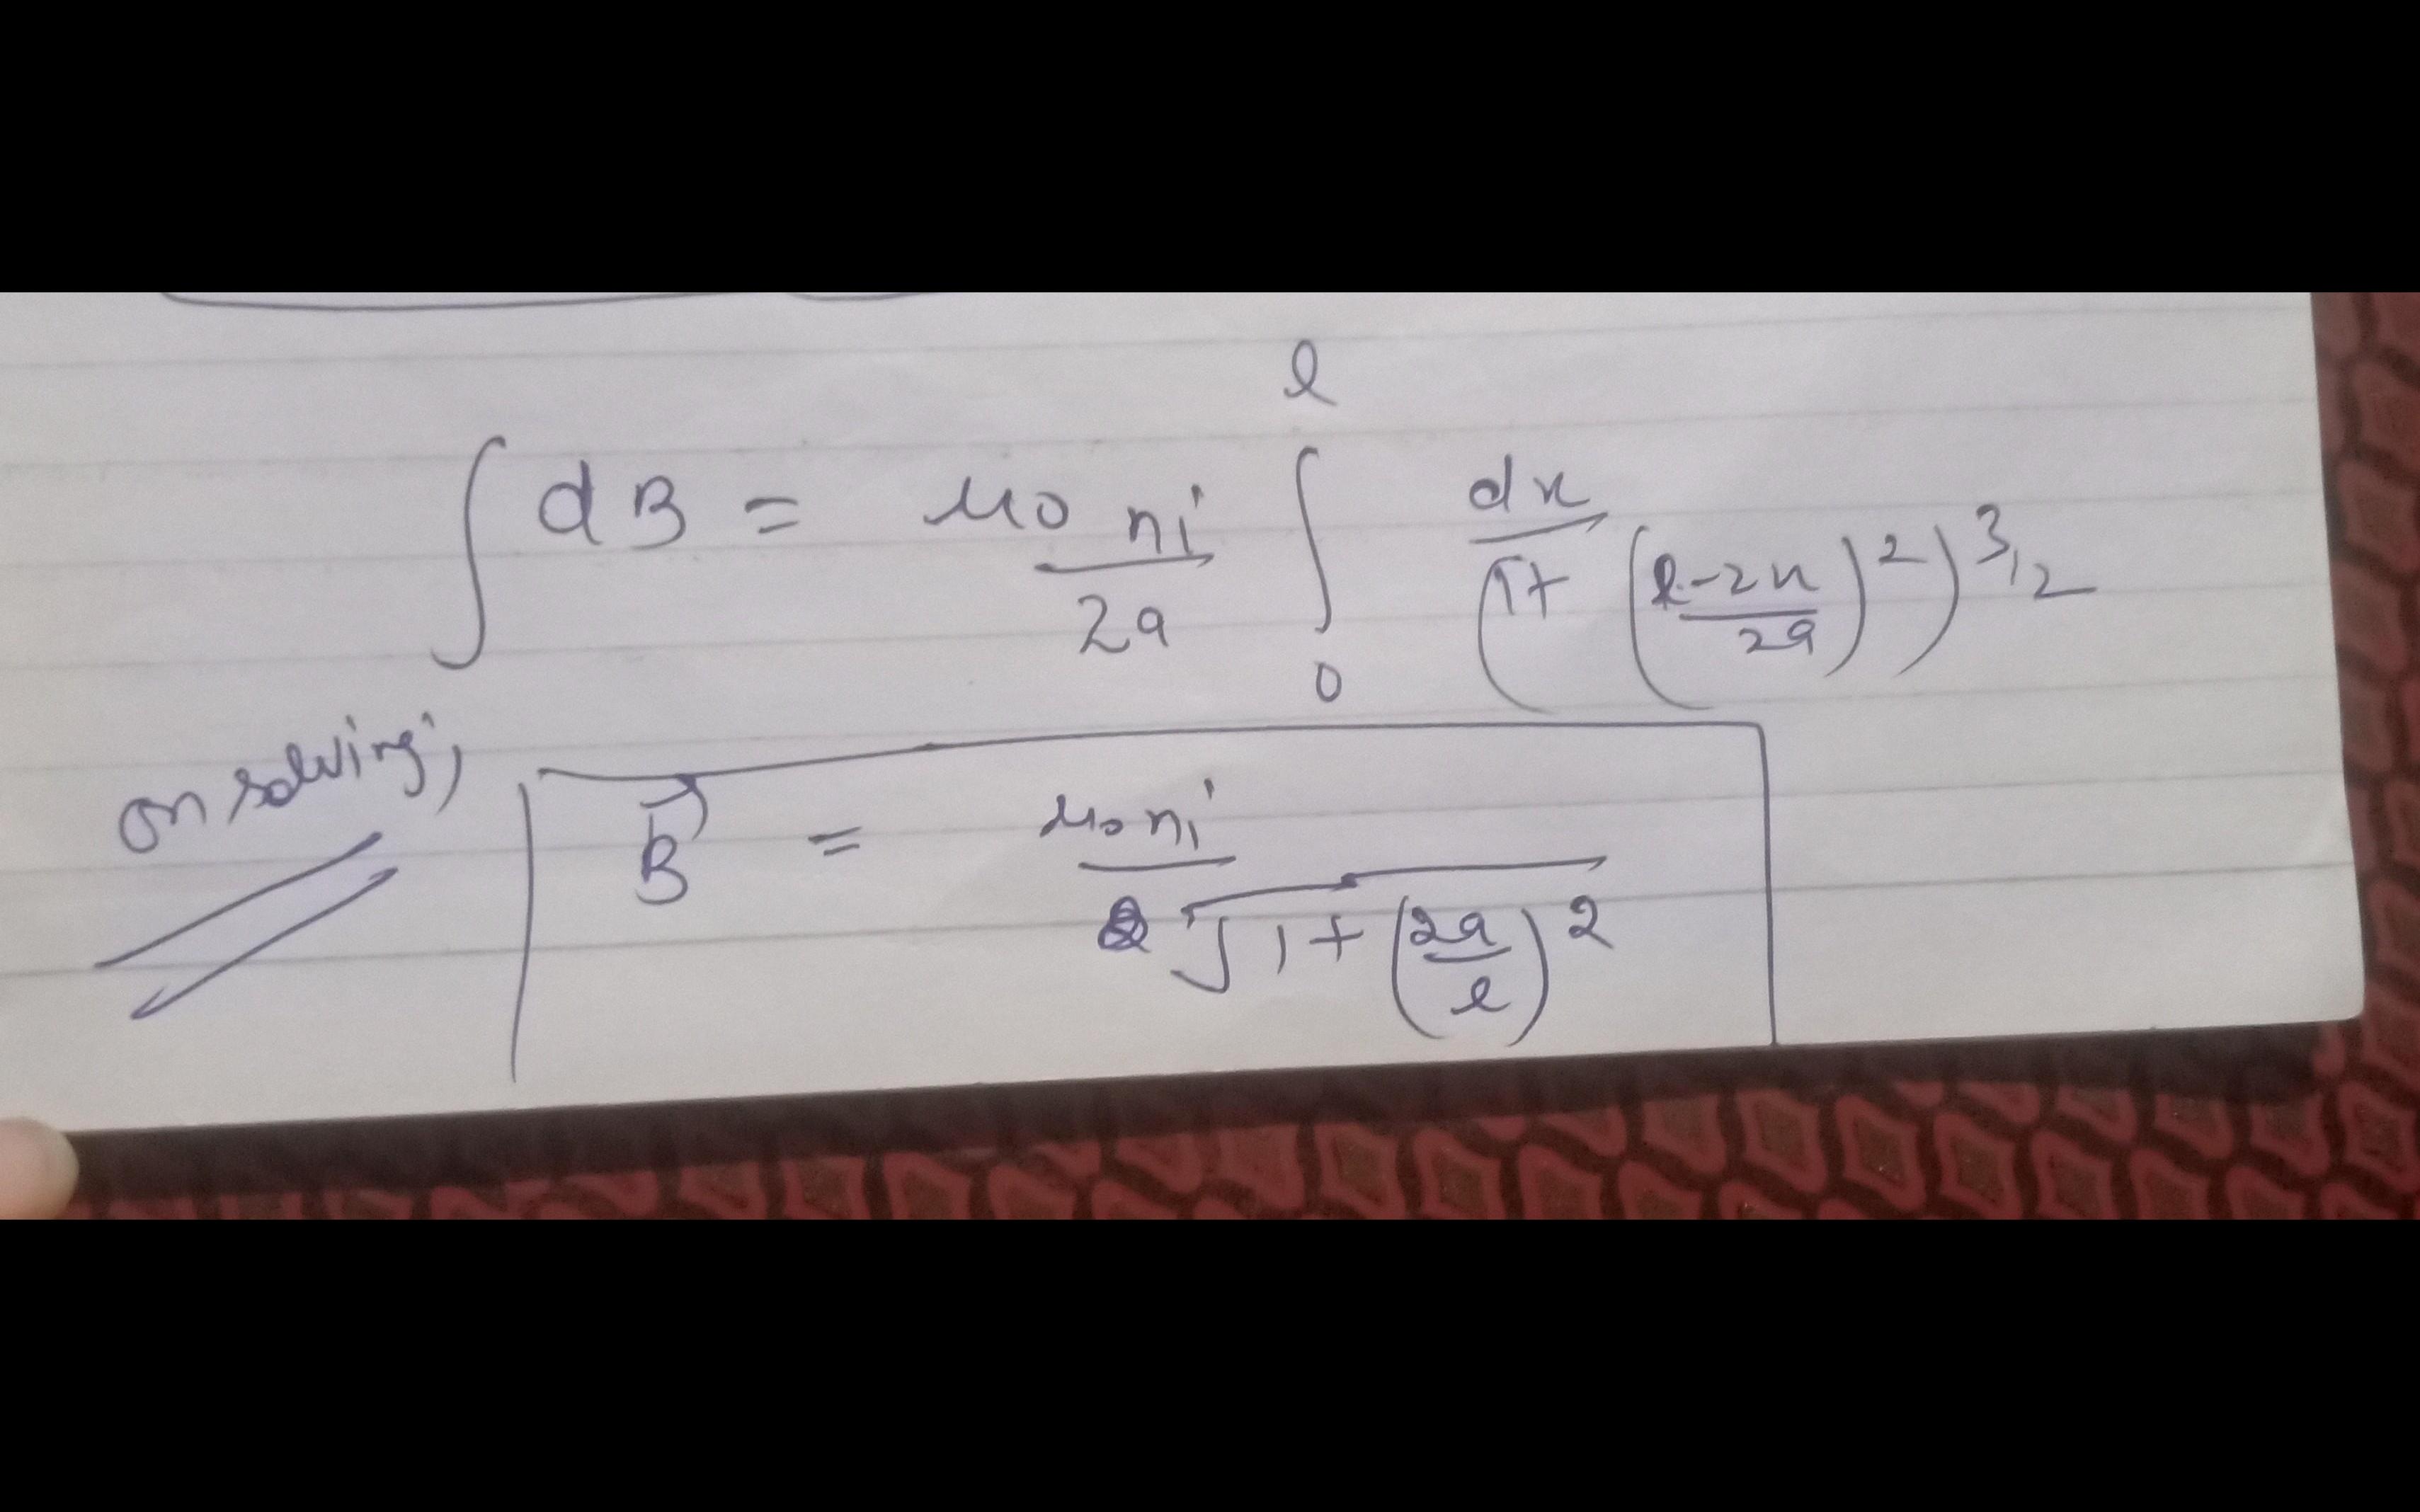 ∫ dB = μ0 ni/2a ∫₀^l dx/(1+((l-2x)/2a)²)^3/2
on solving;
B⃗ = μ0 ni / √(1+(2a/l)²)